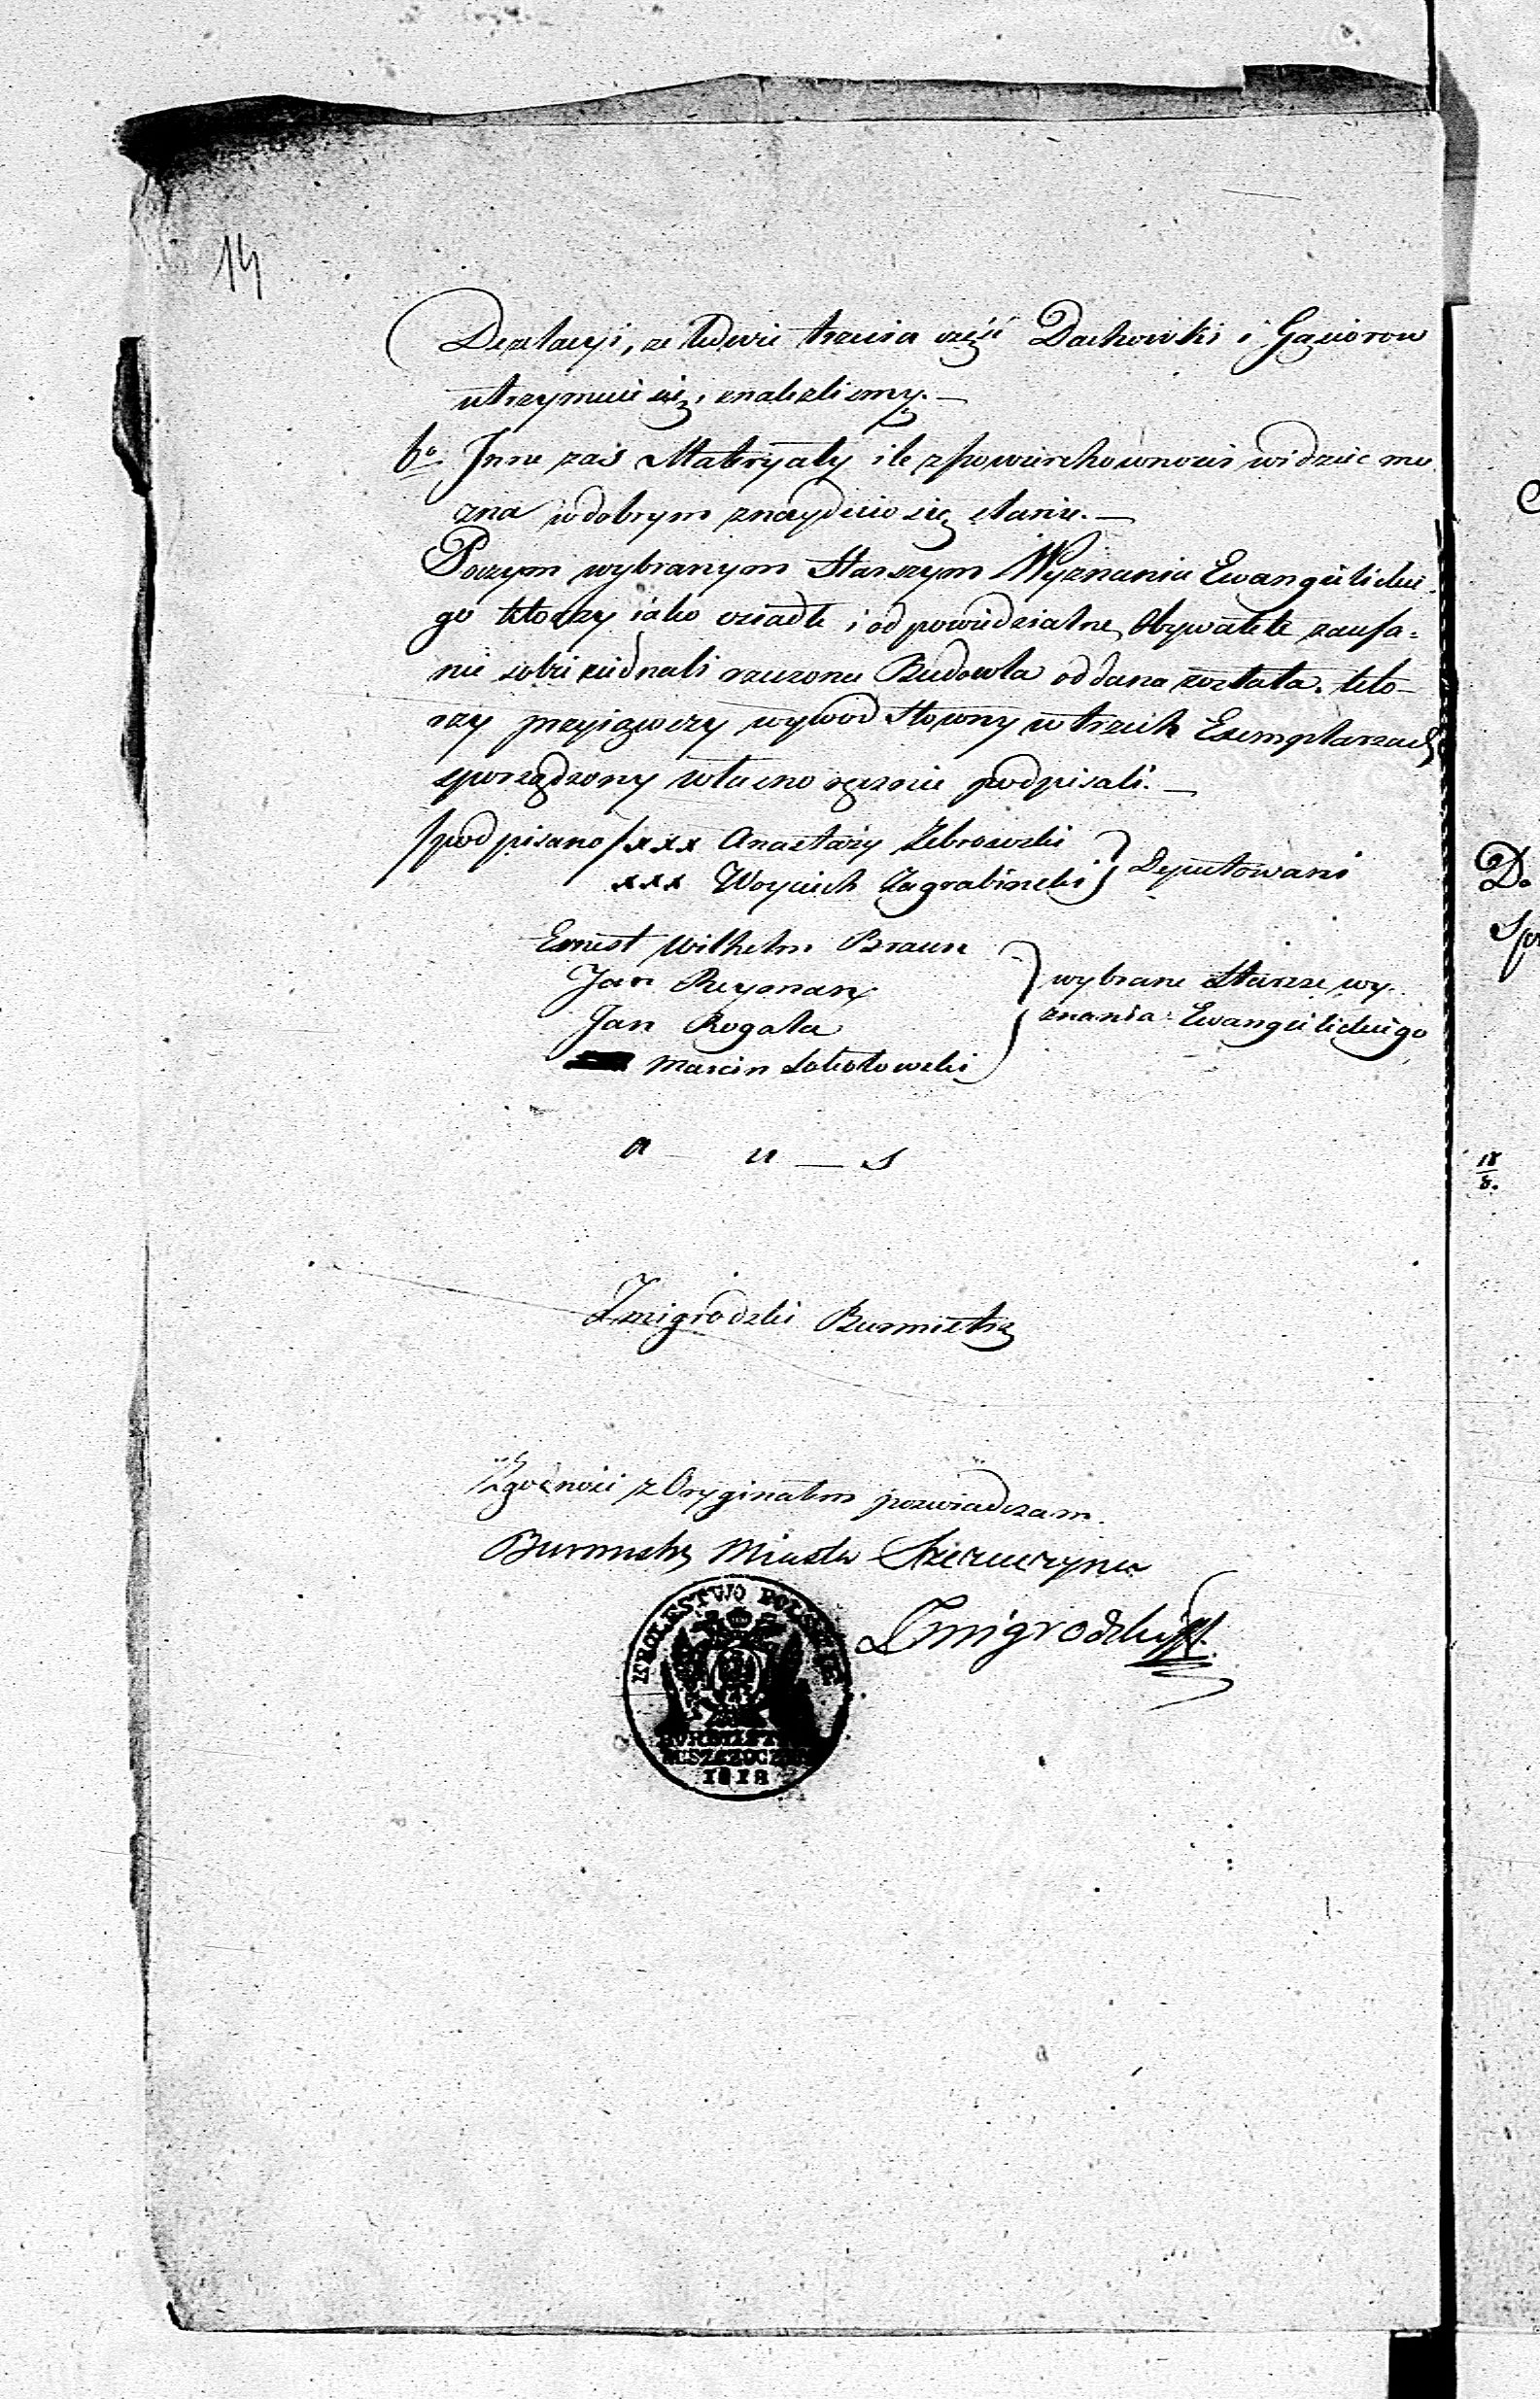 14
Dezlacyi, że ledwie trzecia część Dachowki i Gąsiorow
utrzymuie się, znalezliomy.—
6o Inne zaś Materyały ile z powierzchowności widzieć mo
zna w dobrym znayduio się stanie.—
Poczym wybranym Starszym Wyznania Ewangielickie-
go ktorzy iako osiadłe i odpowiedzialne Obywatele zaufa=
nie sobie ziednali rzeczona Budowla oddana została. kto-
rzy przyiąwszy wywod słowny w trzech Exemplarzach
sporządzony własno ręcznie podpisali.—
/podpisano/ xxx Anastazy Żebrowski
xxx Woyciech Zagrabinski } Deputowani
Ernest Wilhelm Braun
Jan Reyman
Jan Rogala
Marcin Sokołowski
} wybrane Starsze wy-
znania Ewangielickiego
a — u — s
Żmigrodzki Burmistrz
Zgodność z Oryginałem poswiadczam.
Burmistrz Miasta Szczuczyna
Żmigrodzki
KROLESTWO POLSKIE
BURMISTRZ
1818
D.
Sp
18
8.